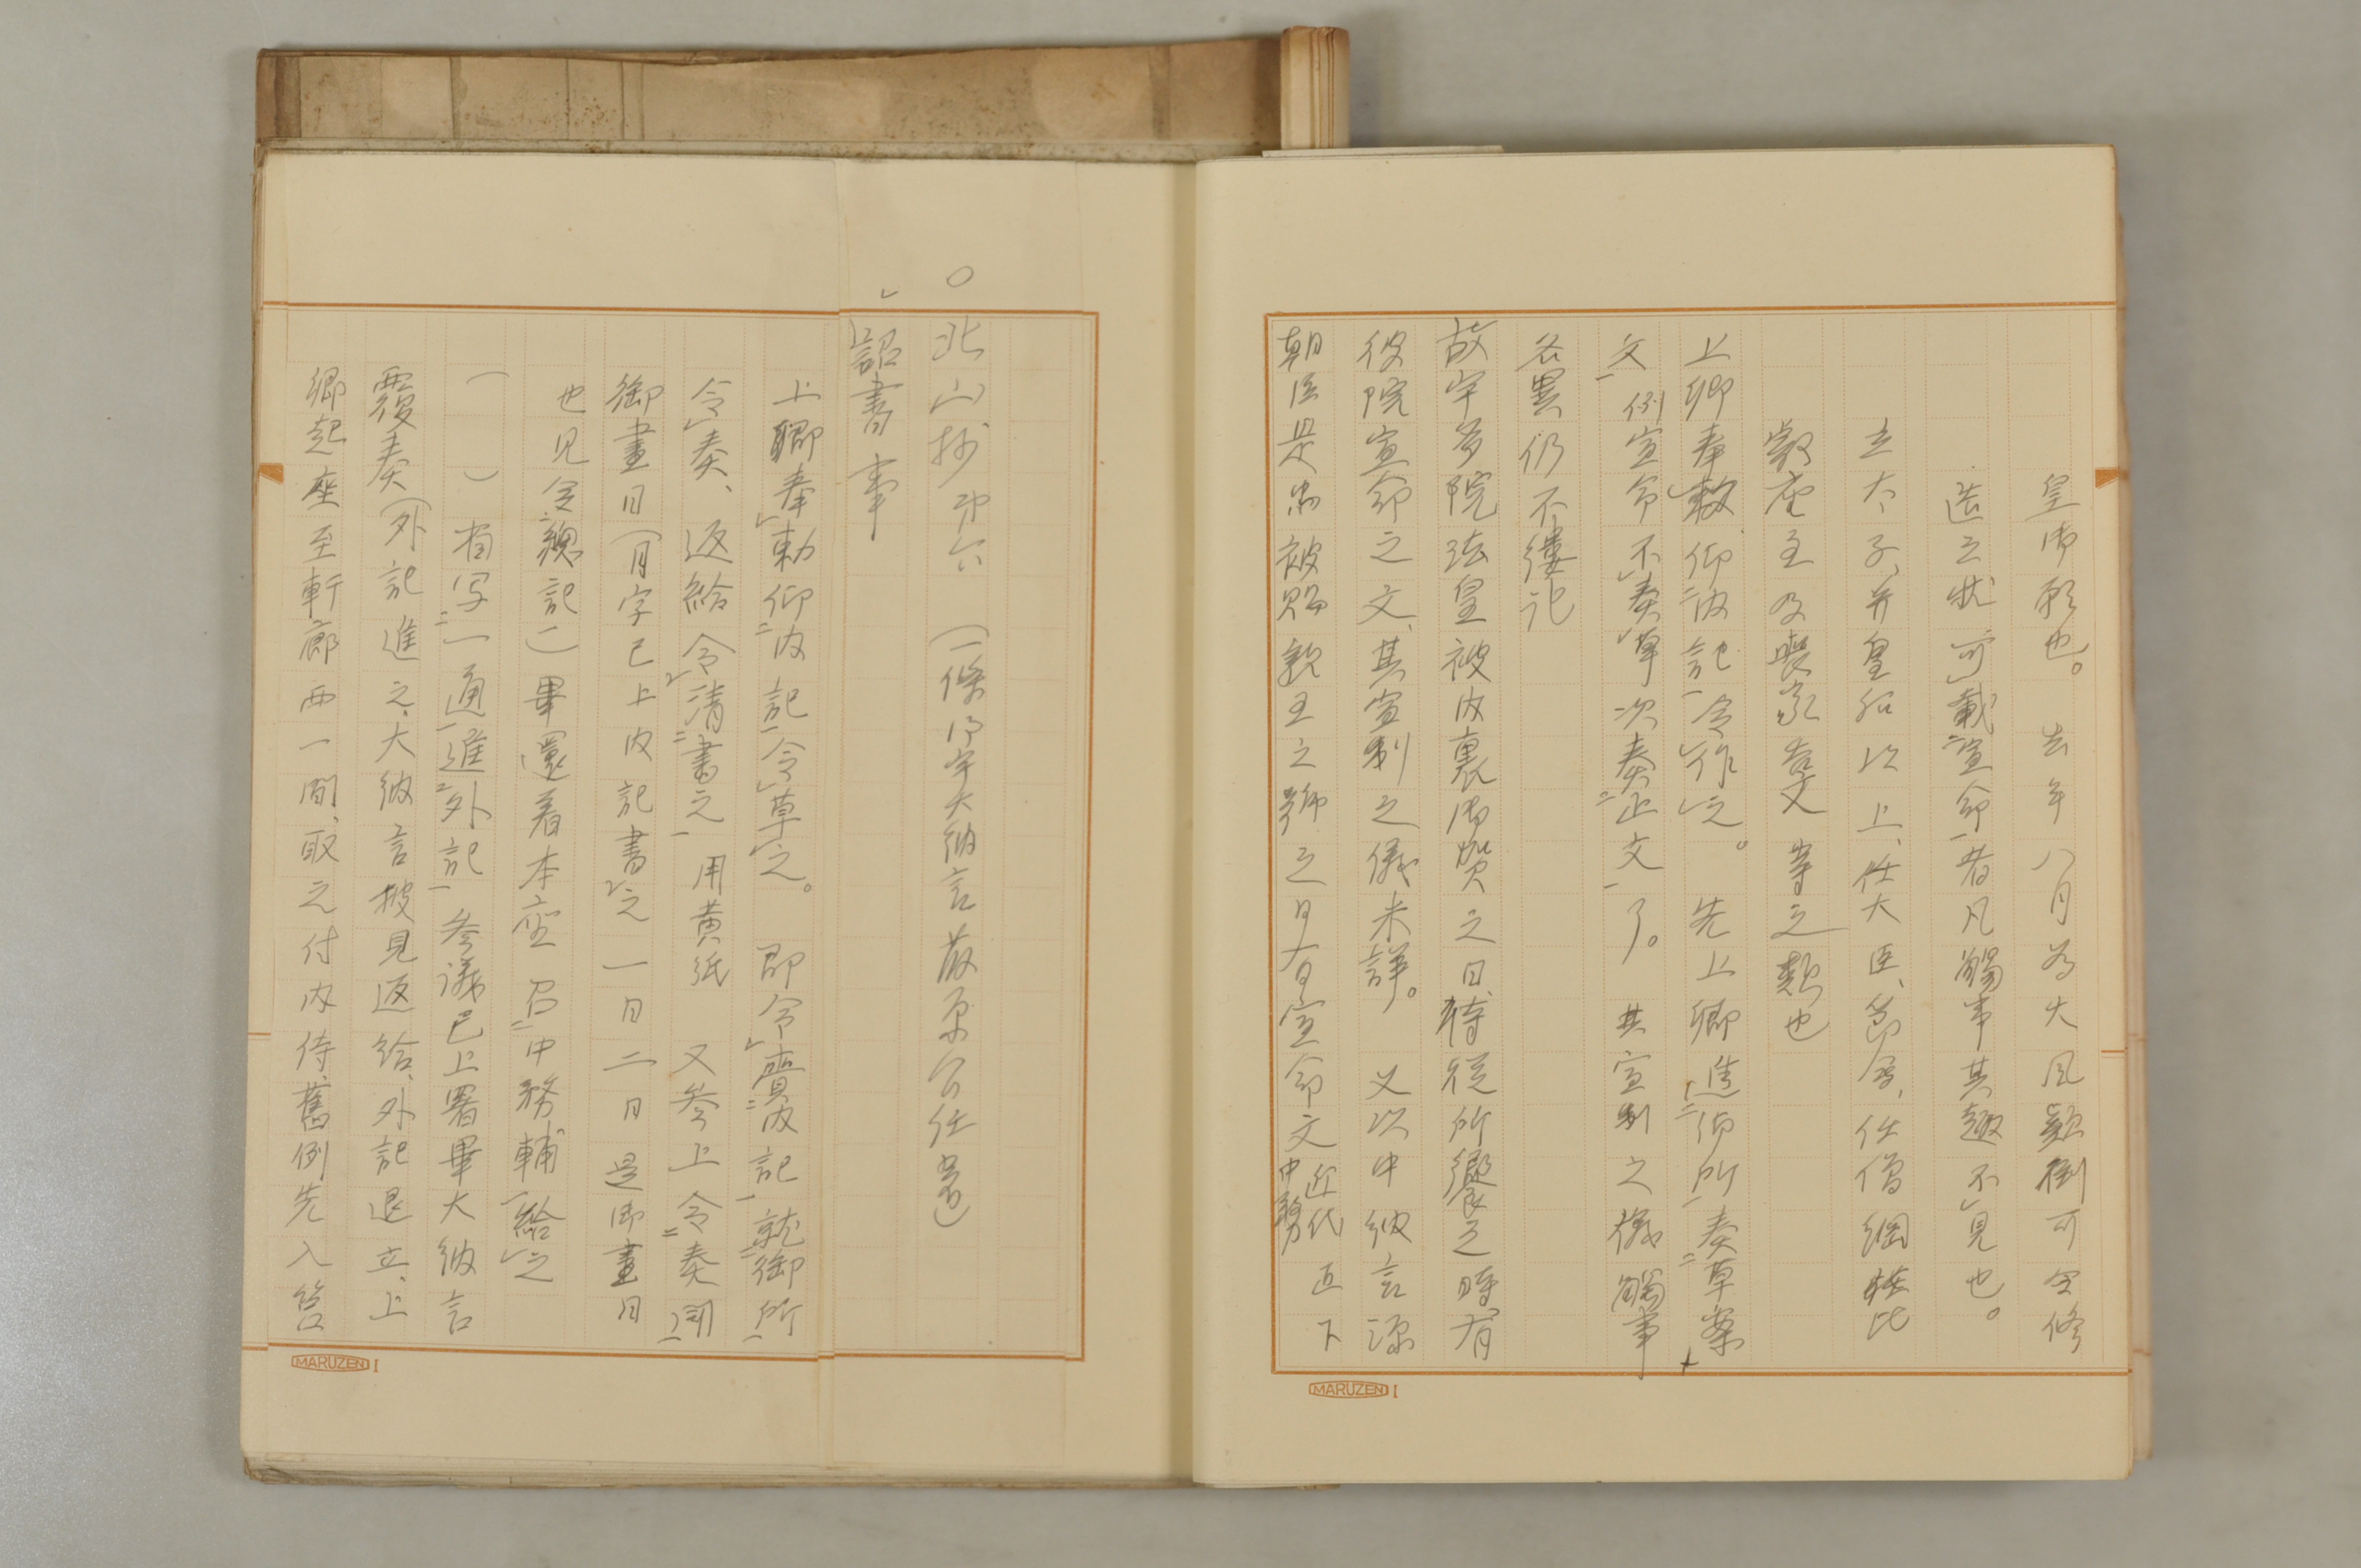 皇御願也。去年八月為大風顛倒可令修
造之状可載宣命者凡觸事其趣不見也。
立太子、并皇后以上、任大臣、節会、任僧綱
座主及喪家等之類也
上卿奉勅仰内記令作之。先上卿進御所奏草案
文例宣命不奏草次奏正文了。其宣制之儀觸事
各異仍不縷記
故宇多院法皇被内裏御賀之日、侍従所饗之時、有
彼院宣命之文、其宣制之儀未詳。又以中納言源
朝臣是忠被賜親王之号之日有宣命文近代
中務
北山抄第六（一條院御宇大納言藤原公任書）
詔書事
上卿奉勅仰内記令草之。即令齎内記就御所
令奏、返給令清書之用黄紙又参上令奏聞
御畫日（月字已上内記書之一日二日是御畫日
也見令總記）畢還着本座召中務輔給之
（　）省写一通進外記参議已上署畢大納言
覆奏（外記進之、大納言披見返給、外記退立、上
卿起座至軒廊西一間、取之付内侍、舊例先入筥
MARUZEN I
MARUZEN I